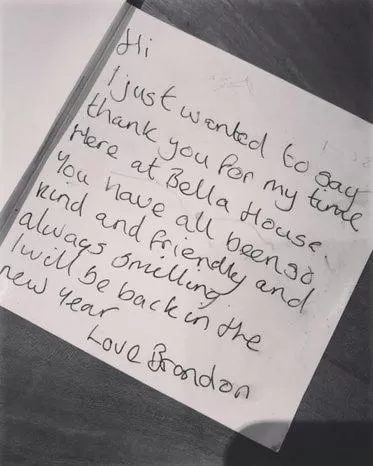 Hi
I just wanted to say
thank you for my time
Here at Bella House.
You have all been so
kind and friendly and
always smilling.
I will be back in the
new year
Love Brandon